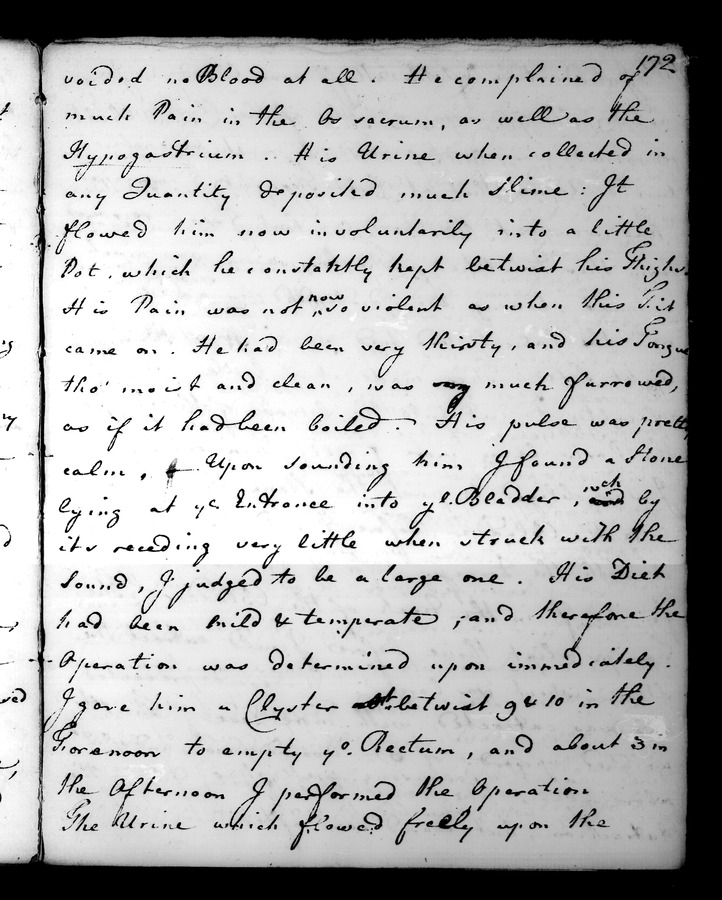 172
voided no Blood at all. He complained of
much Pain in the Os sacrum, as well as the
Hypogastrium. His Urine when collected in
any Quantity deposited much slime: It
flowed him now involuntarily into a little
Pot, which he constaktly kept betwixt his Thighs.
His Pain was not now so violent as when this Fit
came on. He had been very thirsty, and his Tongue
tho' moist and clean, was much furrowed,
as if it had been boiled. His pulse was pretty
calm. Upon sounding him I found a Stone
lying at ye Entrance into ye. Bladder, wch by
its receding very little when struck with the
Sound, I judged to be a large one. His Diet
had been mild & temperate; and therefore the
Operation was determined upon immediately.
I gave him a Clyster betwixt 9 & 10 in the
Forenoon to empty ye. Rectum, and about 3 in
the Afternoon I performed the Operation
The Urine which flowed freely upon the